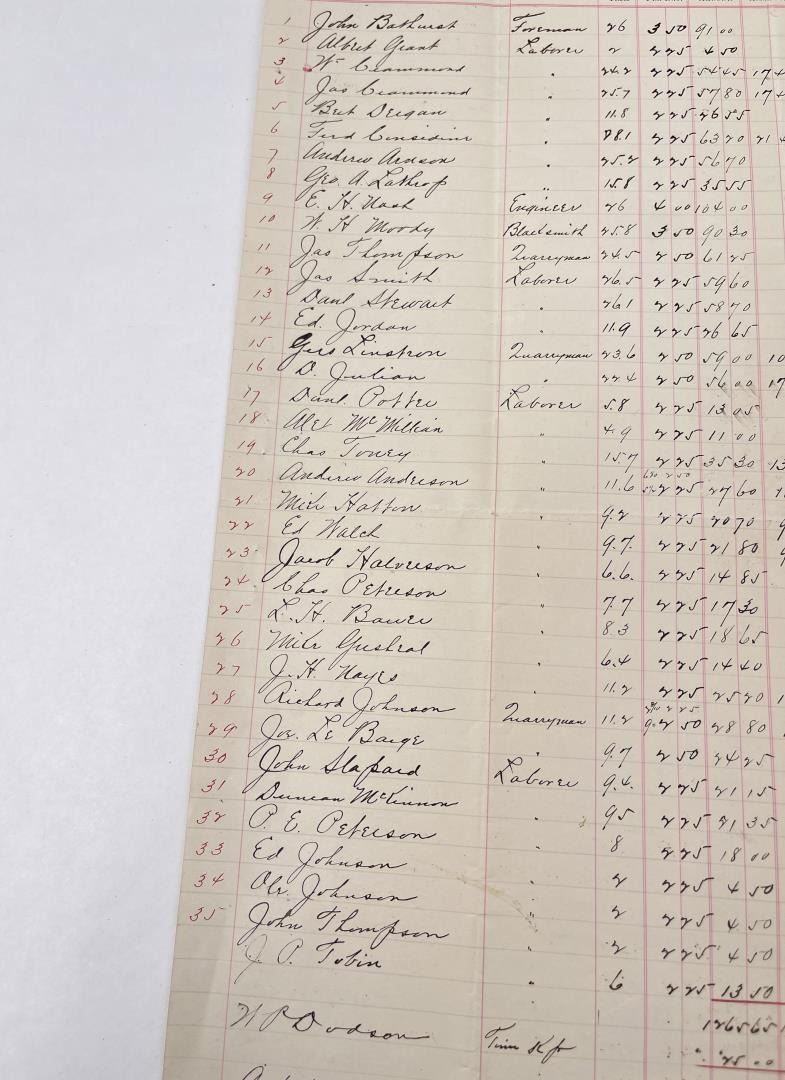 1 John Bathurst Foreman 26 3 50 91 00
2 Albert Grant Laborer 2 2 25 4 50
3 Wm Crammond " 24.2 2 25 54 45 17 4
4 Jas Crammond " 25.7 2 25 57 80 17 4
5 Bert Deigan " 11.8 2 25 26 55
6 Ferd Considine " 28.1 2 25 63 20 21 4
7 Andrew Aronson " 25.2 2 25 56 70
8 Geo. A. Lathrop " 15.8 2 25 35 55
9 E. H. Nash Engineer 26 4 00 104 00
10 W. H. Moody Blacksmith 25.8 3 50 90 30
11 Jas Thompson Quarryman 24.5 2 50 61 25
12 Jas Smith Laborer 26.5 2 25 59 60
13 Danl Stewart " 26.1 2 25 58 70
14 Ed. Jordan " 11.9 2 25 26 65
15 Gus Linstron Quarryman 23.6 2 50 59 00 10
16 D. Julian " 22.4 2 50 56 00 17
17 Danl. Potter Laborer 5.8 2 25 13 05
18 Alex McMillian " 4.9 2 25 11 00
19 Chas Toney " 15.7 2 25 35 30 13
20 Andrew Anderson " 11.6 2 25 27 60
21 Mike Hatton " 9.2 2 25 20 70
22 Ed Walch " 9.7 2 25 21 80
23 Jacob Halverson " 6.6 2 25 14 85
24 Chas Peterson " 7.7 2 25 17 30
25 L. H. Bauer " 8.3 2 25 18 65
26 Mike " 6.4 2 25 14 40
27 J. H. Hayes " 11.2 2 25 25 20
28 Richard Johnson Quarryman 11.2 2 50 28 80
29 Joe. Le Barge " 9.7 2 50 24 25
30 John Slapard Laborer 9.4 2 25 21 15
31 Duncan McKinnon " 9.5 2 25 21 35
32 P. E. Peterson " 8 2 25 18 00
33 Ed Johnson " 2 2 25 4 50
34 Ole Johnson " 2 2 25 4 50
35 John Thompson " 2 2 25 4 50
J. P. Tobin " 6 2 25 13 50
1265 65
W P Dodson Time Kpr 75 00